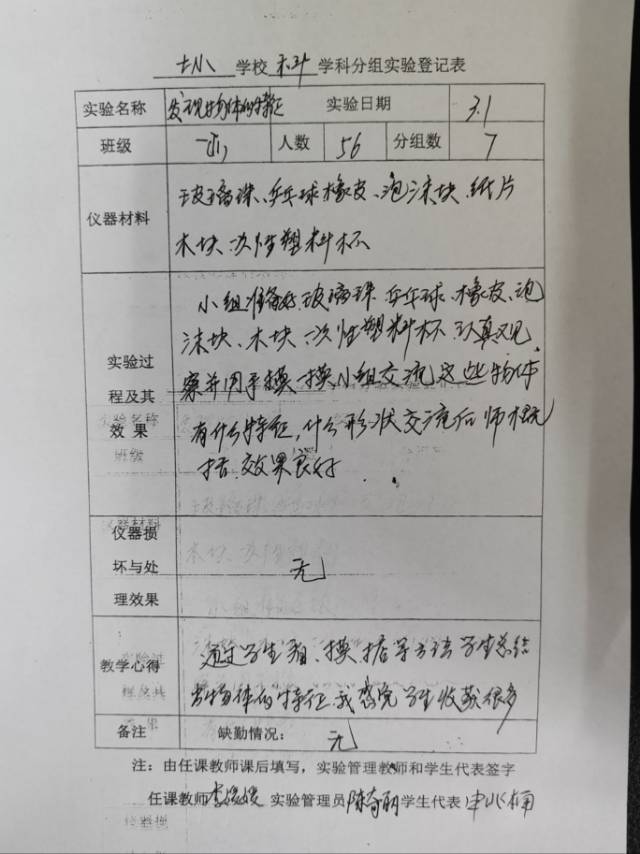 学校 科 学科分组实验登记表
实验名称 发现物体的特征 实验日期 3.1
班级 人数 56 分组数 7
仪器材料 玻璃珠、乒乓球橡皮、泡沫块、纸片
木块、次性塑料杯
小组准备好玻璃珠、乒乓球、橡皮、泡
沫块、木块、一次性塑料杯、认真观
察并用手摸一摸,小组交流这些物体
有什么特征,什么形状交流后师概
括、效果良好
实验过
程及其
效果
仪器损
坏与处
理效果
无
教学心得 通过学生看、摸、掂等方法学生总结
物体的特征.我感觉学生收获很多
备注 缺勤情况: 无
注:由任课教师课后填写,实验管理教师和学生代表签字
任课教师 李媛媛 实验管理员 学生代表